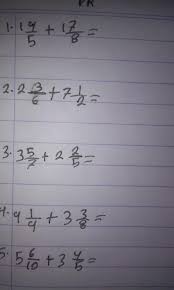 1. 1 4/5 + 1 7/8 =
2. 2 3/6 + 7 1/2 =
3. 3 5/7 + 2 2/5 =
4. 4 1/4 + 3 3/8 =
5. 5 6/10 + 3 4/5 =